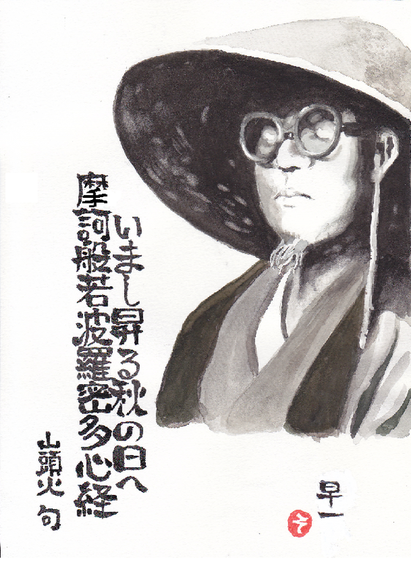 いまし昇る秋の日へ
摩訶般若波羅密多心経
山頭火 句
早一